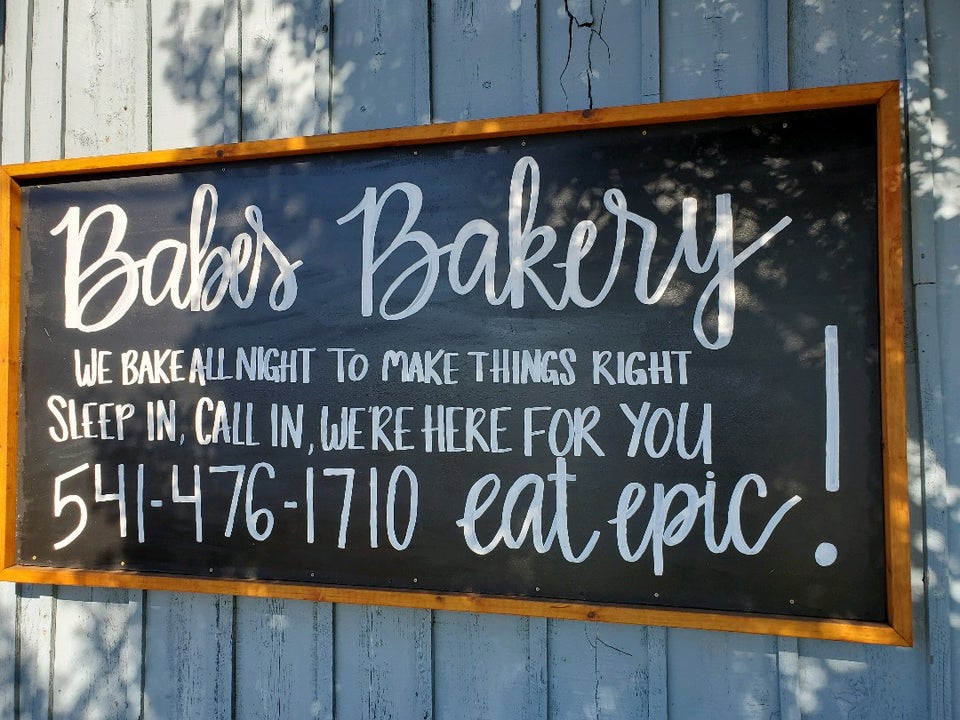 Babes Bakery
WE BAKE ALL NIGHT TO MAKE THINGS RIGHT
SLEEP IN, CALL IN, WE'RE HERE FOR YOU
541-476-1710 eat epic!